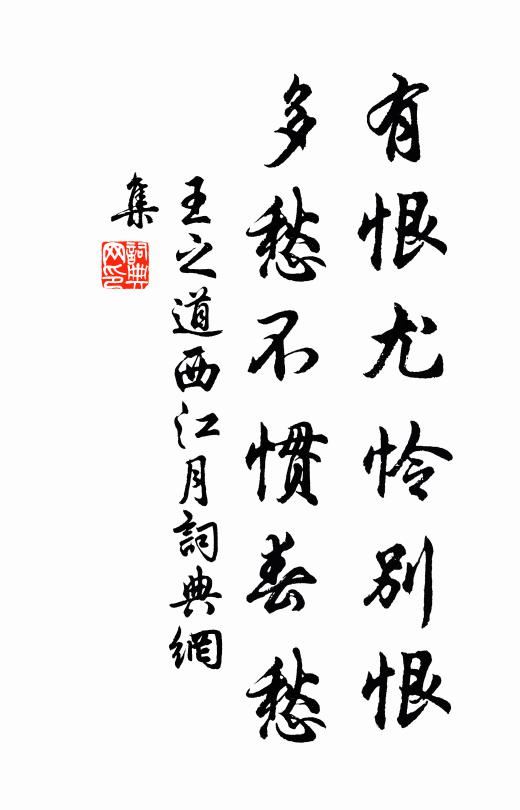 有恨尤怜別恨
多愁不慣春愁
王之道西江月詞典網
集
詞典網印